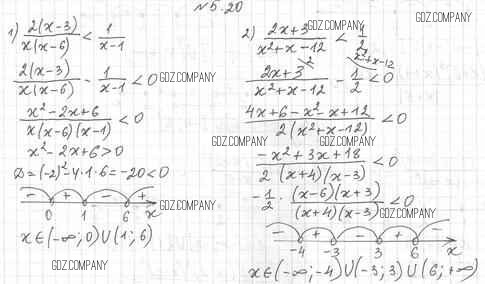 №5.20
1) 2(x-3)/x(x-6) < 1/(x-1)
2(x-3)/x(x-6) - 1/(x-1) < 0
x²-2x+6/x(x-6)(x-1) < 0
x²-2x+6>0
D=(-2)²-4·1·6=-20<0
- + - +
0 1 6 x
x∈(-∞;0)∪(1;6)
2) 2x+3/x²+x-12 < 1/2
2x+3\2/x²+x-12 - 1/2\x²+x-12 < 0
4x+6-x²-x+12/2(x²+x-12) < 0
-x²+3x+18/2(x+4)(x-3) < 0
-1/2 · (x-6)(x+3)/(x+4)(x-3) < 0
- + - + -
-4 -3 3 6 x
x∈(-∞;-4)∪(-3;3)∪(6;+∞)
GDZ.COMPANY
GDZ.COMPANY
GDZ.COMPANY
GDZ.COMPANY
GDZ.COMPANY
GDZ.COMPANY
GDZ.COMPANY
GDZ.COMPANY
GDZ.COMPANY